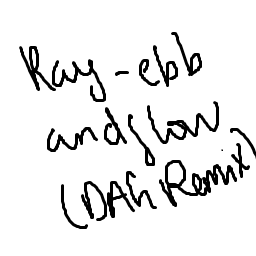 Ray - ebb
and flow
(DAG Remix)